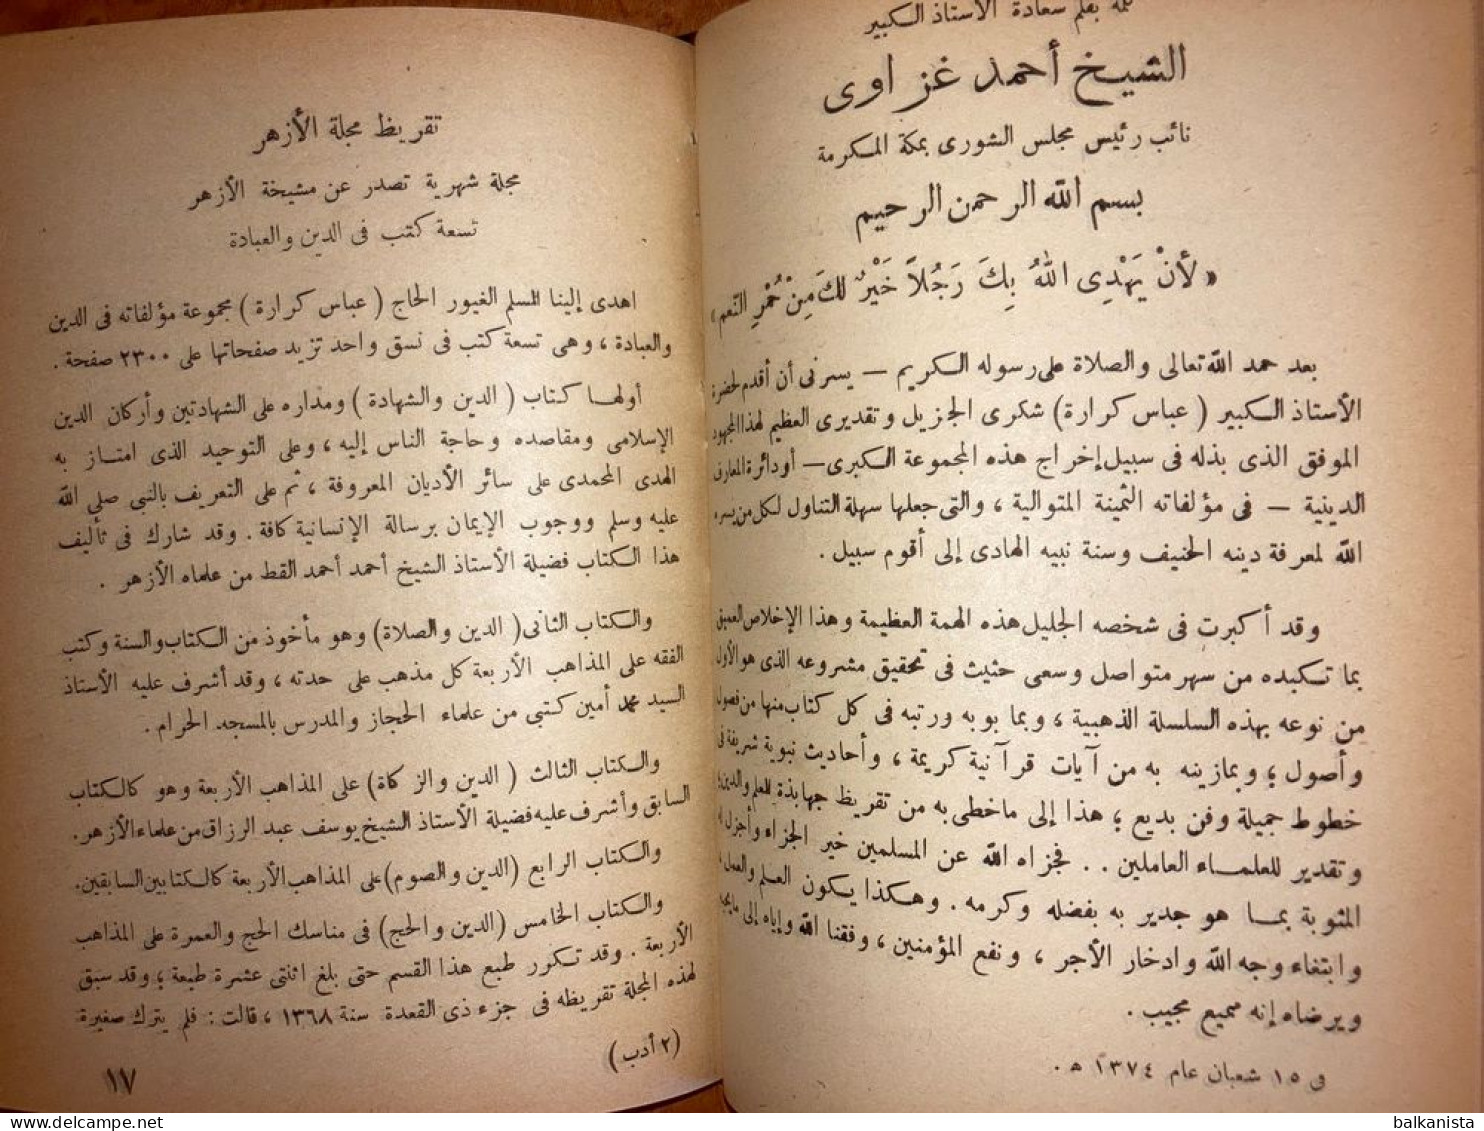 كلمة بقلم سعادة الأستاذ الكبير
الشيخ أحمد غزاوى
نائب رئيس مجلس الشورى بمكة المكرمة
بسم الله الرحمن الرحيم
« لأنْ يَهْدِى اللهُ بِكَ رَجُلاً خَيْرٌ لكَ مِنْ حُمْرِ النَّعم »
بعد حمد الله تعالى والصلاة على رسوله الكريم — يسرنى أن أقدم لحضرة
الأستاذ الكبير ( عباس كرارة ) شكرى الجزيل وتقديرى العظيم لهذا المجهود
الموفق الذى بذله فى سبيل إخراج هذه المجموعة الكبرى — أو دائرة المعارف
الدينية — فى مؤلفاته الثمينة المتوالية ، والتى جعلها سهلة التناول لكل من يسره
الله لمعرفة دينه الحنيف وسنة نبيه الهادى إلى أقوم سبيل .
وقد أكبرت فى شخصه الجليل هذه الهمة العظيمة وهذا الإخلاص العميق
بما تكبده من سهر متواصل وسعى حثيث فى تحقيق مشروعه الذى هو الأول
من نوعه بهذه السلسلة الذهبية ، وبما بوبه ورتبه فى كل كتاب منها من فصول
وأصول ؛ وبما زينه به من آيات قرآنية كريمة ، وأحاديث نبوية شريفة فى
خطوط جميلة وفن بديع ؛ هذا إلى ما حظى به من تقريظ جهابذة للعلم والدين ؛
وتقدير للعلماء العاملين . . فجزاه الله عن المسلمين خير الجزاء وأجزل له
المثوبة بما هو جدير به بفضله وكرمه . وهكذا يكون العلم والعمل
وابتغاء وجه الله وادخار الأجر ، ونفع المؤمنين ، وفقنا الله وإياه إلى ما يحبه
ويرضاه إنه سميع مجيب .
فى ١٥ شعبان عام ١٣٧٤ ه .
تقريظ مجلة الأزهر
مجلة شهرية تصدر عن مشيخة الأزهر
تسعة كتب فى الدين والعبادة
اهدى إلينا المسلم الغيور الحاج ( عباس كرارة ) مجموعة مؤلفاته فى الدين
والعبادة ، وهى تسعة كتب فى نسق واحد تزيد صفحاتها على ٢٣٠٠ صفحة .
أولها كتاب ( الدين والشهادة ) ومداره على الشهادتين وأركان الدين
الإسلامى ومقاصده وحاجة الناس إليه ، وعلى التوحيد الذى امتاز به
الهدى المحمدى على سائر الأديان المعروفة ، ثم على التعريف بالنبى صلى الله
عليه وسلم ووجوب الإيمان برسالة الإنسانية كافة . وقد شارك فى تأليف
هذا الكتاب فضيلة الأستاذ الشيخ أحمد أحمد القط من علماء الأزهر .
والكتاب الثانى ( الدين والصلاة ) وهو مأخوذ من الكتاب والسنة وكتب
الفقه على المذاهب الأربعة كل مذهب على حدته ، وقد أشرف عليه الأستاذ
السيد محمد أمين كتبى من علماء الحجاز والمدرس بالمسجد الحرام .
والكتاب الثالث ( الدين والزكاة ) على المذاهب الأربعة وهو كالكتاب
السابق وأشرف عليه فضيلة الأستاذ الشيخ يوسف عبد الرزاق من علماء الأزهر .
والكتاب الرابع ( الدين والصوم ) على المذاهب الأربعة كالكتابين السابقين .
والكتاب الخامس ( الدين والحج ) فى مناسك الحج والعمرة على المذاهب
الأربعة . وقد تكرر طبع هذا القسم حتى بلغ اثنتى عشرة طبعة ؛ وقد سبق
لهذه المجلة تقريظه فى جزء ذى القعدة سنة ١٣٦٨ ، قالت : فلم يترك صغيرة
( ٢ أدب )
١٧
balkanista